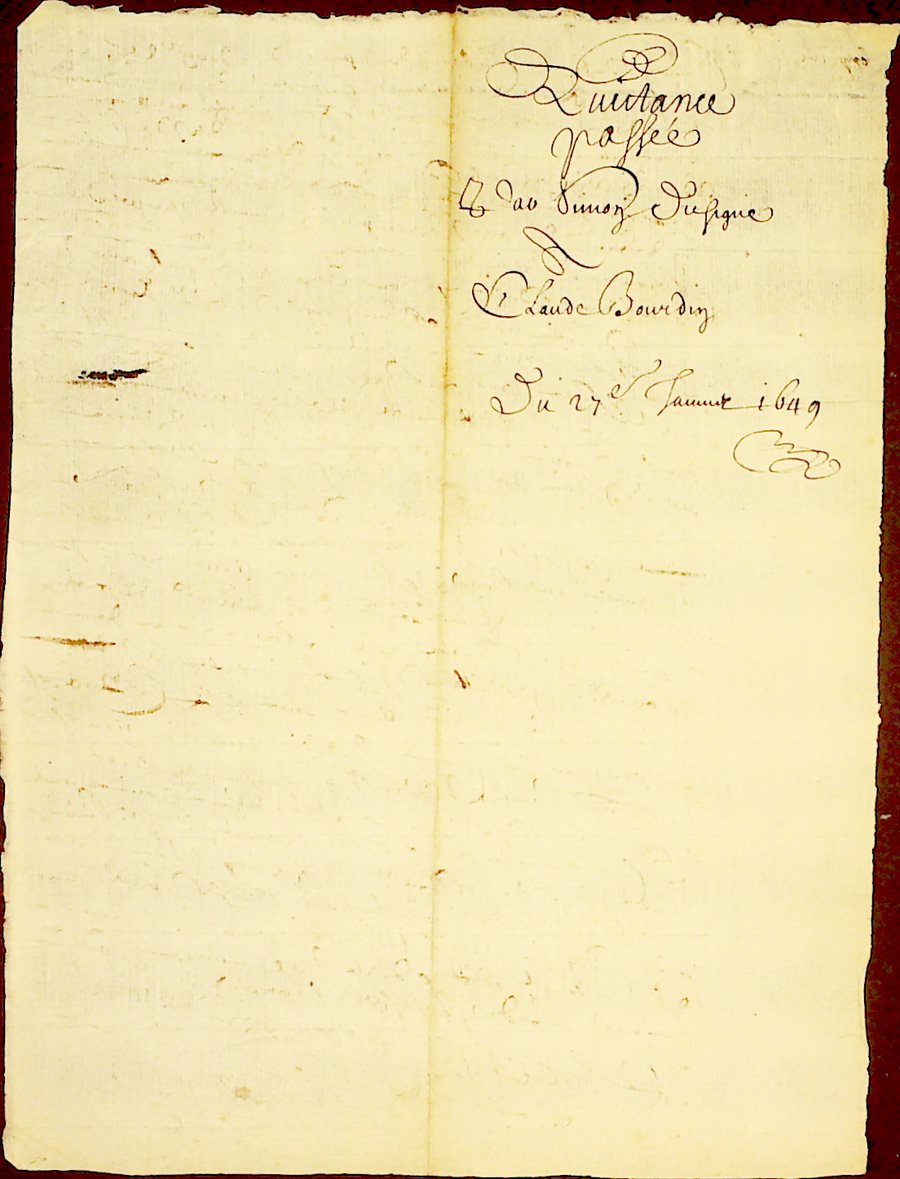 Quictance
passée
Par Simon Dusigne
A
Claude Bourdin
Du 27e Januier 1649